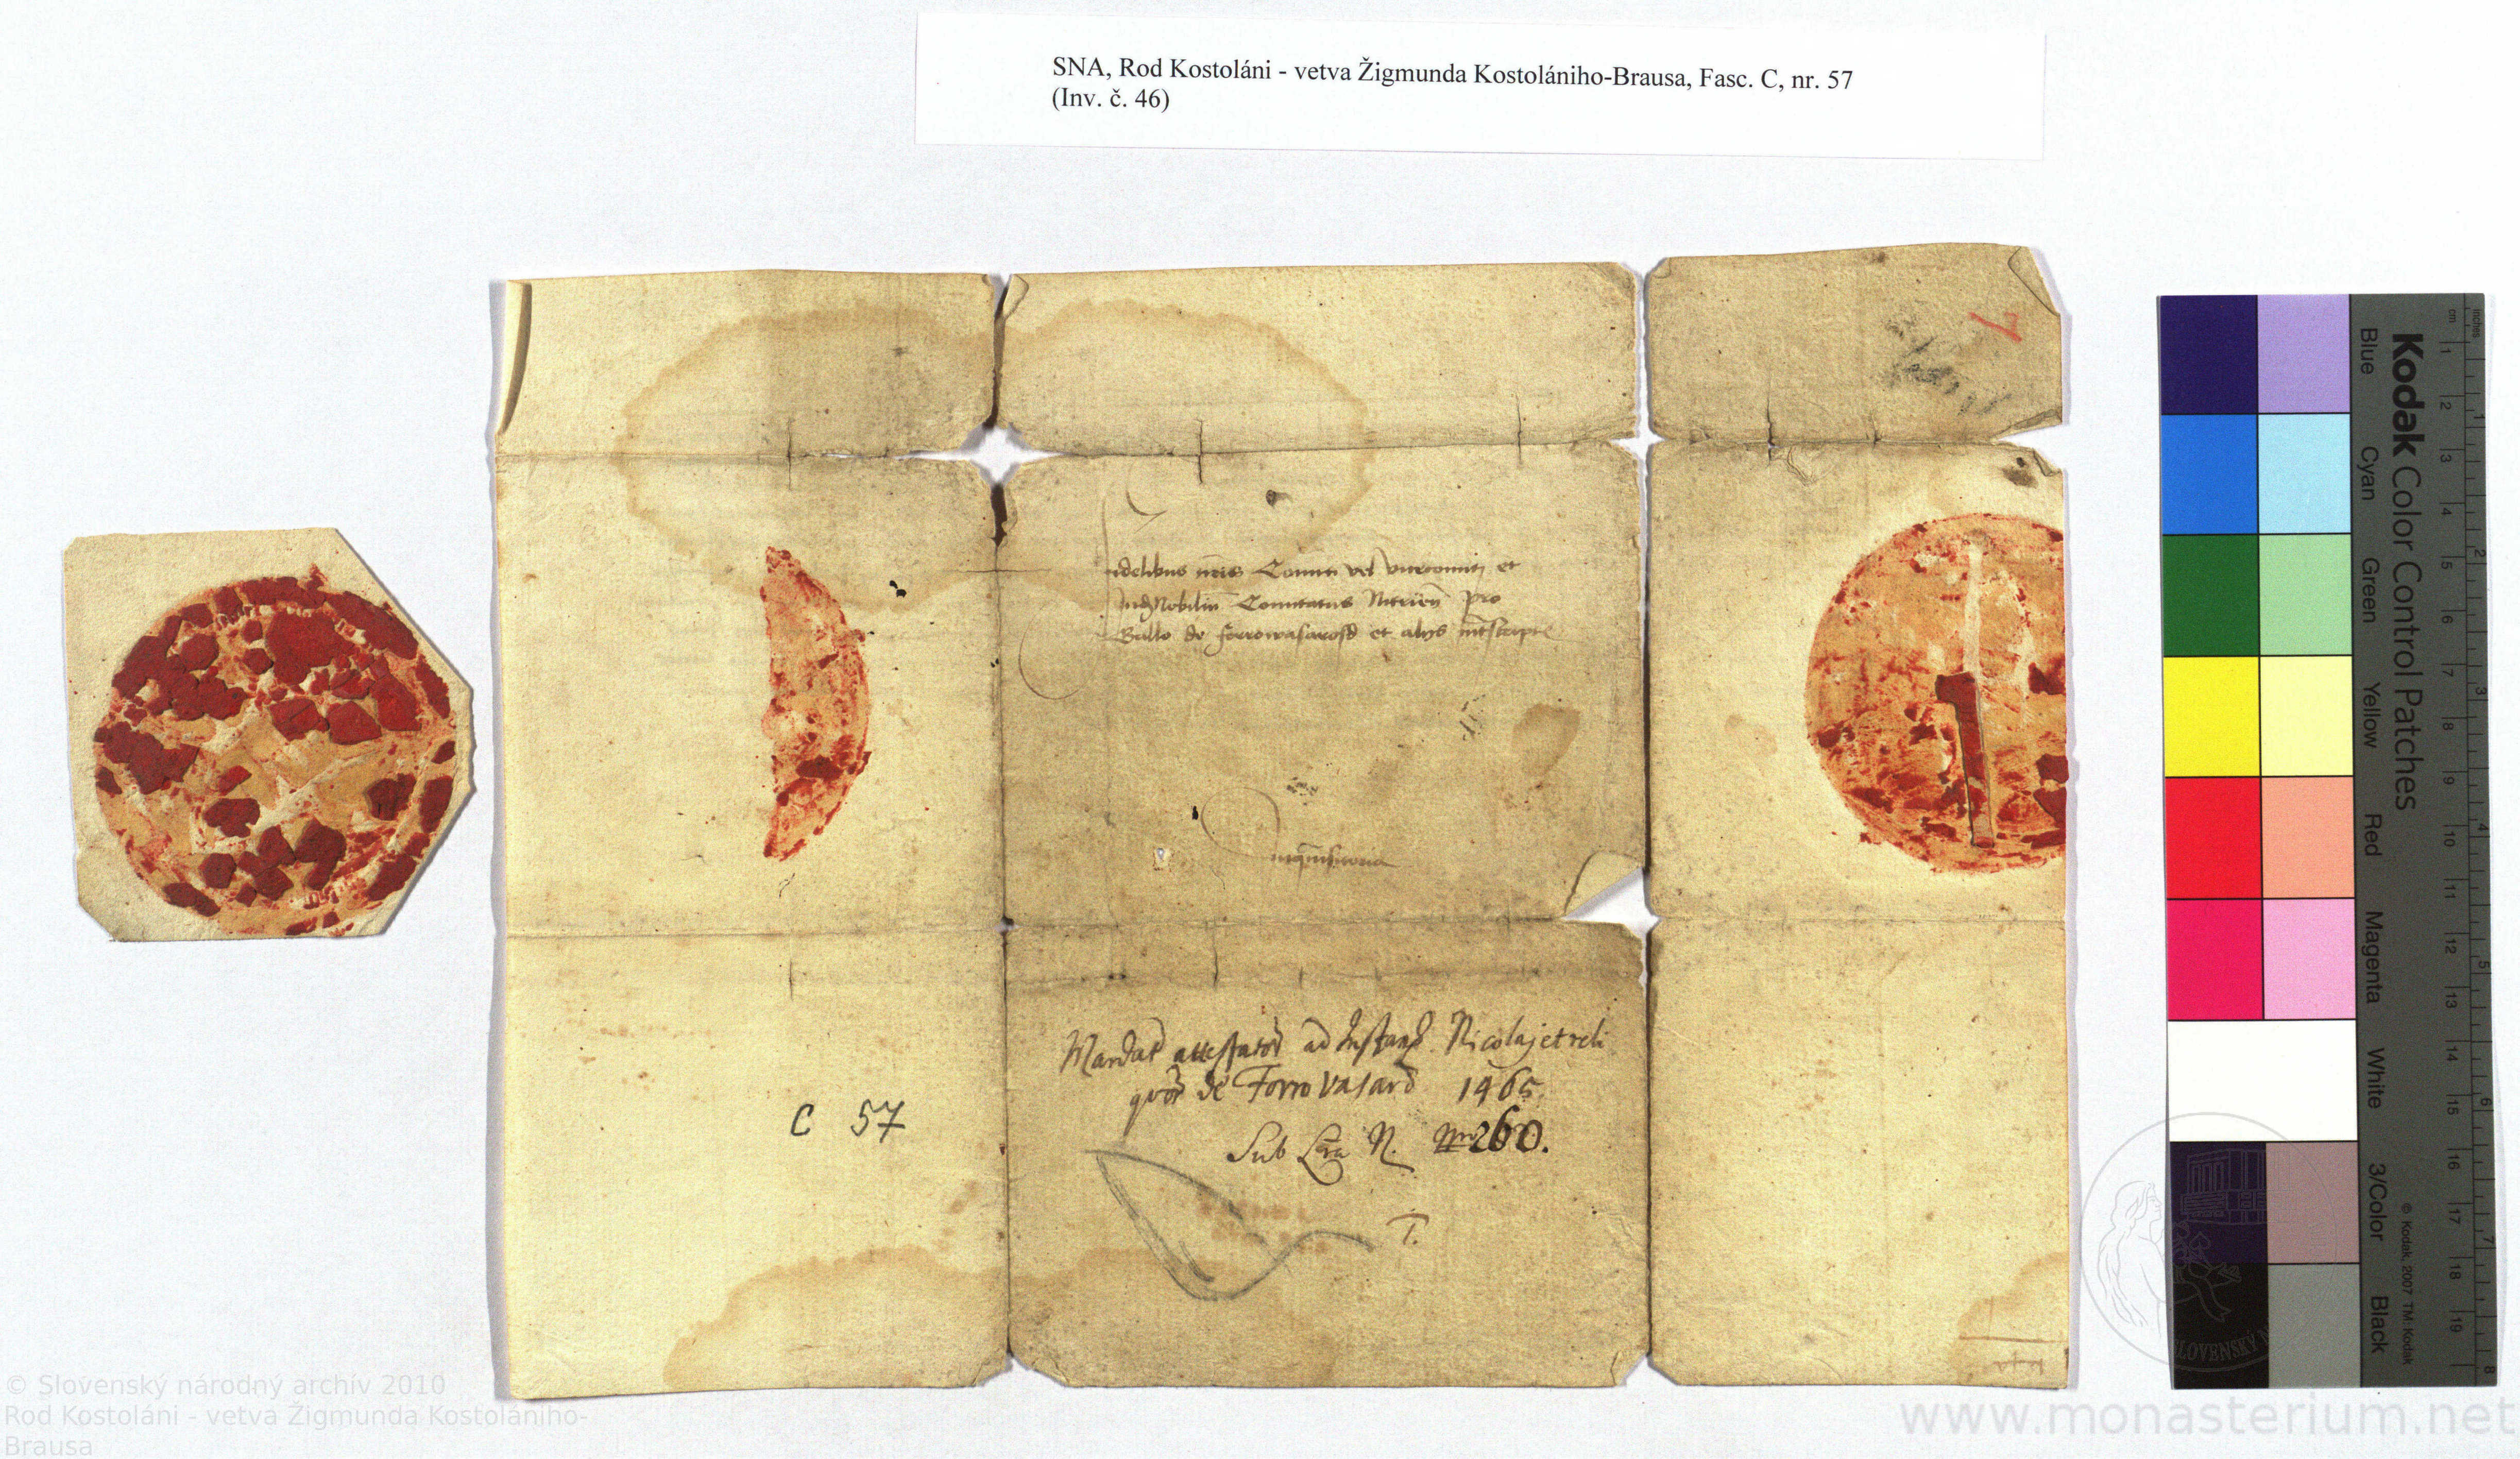 SNA, Rod Kostoláni - vetva Žigmunda Kostolániho-Brausa, Fasc. C, nr. 57
(Inv. č. 46)
fidelibus nris Comiti vel vicecomiti et
Judnobiliu Comitatus Nitrien pro
Gallo de et alys
inquisitoria
Mandat ad Nicolaj
de Forro Vasard 1465.
Sub Lra N. 260.
T.
C 57
Kodak Color Control Patches
Blue Cyan Green Yellow Red Magenta White 3/Color Black
© Kodak, 2007 TM: Kodak
inches
cm
1 2 3 4 5 6 7 8 9 10 11 12 13 14 15 16 17 18 19
1 2 3 4 5 6 7 8
SLOVENSKÝ
© Slovenský národný archív 2010
Rod Kostoláni - vetva Žigmunda Kostolániho-
Brausa
www.monasterium.net